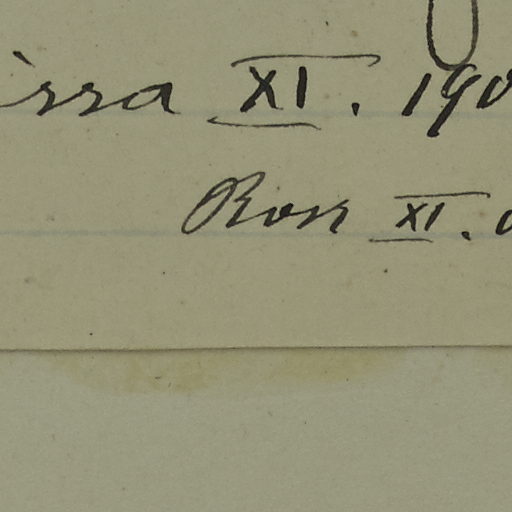 irra XI. 190
Ross XI.